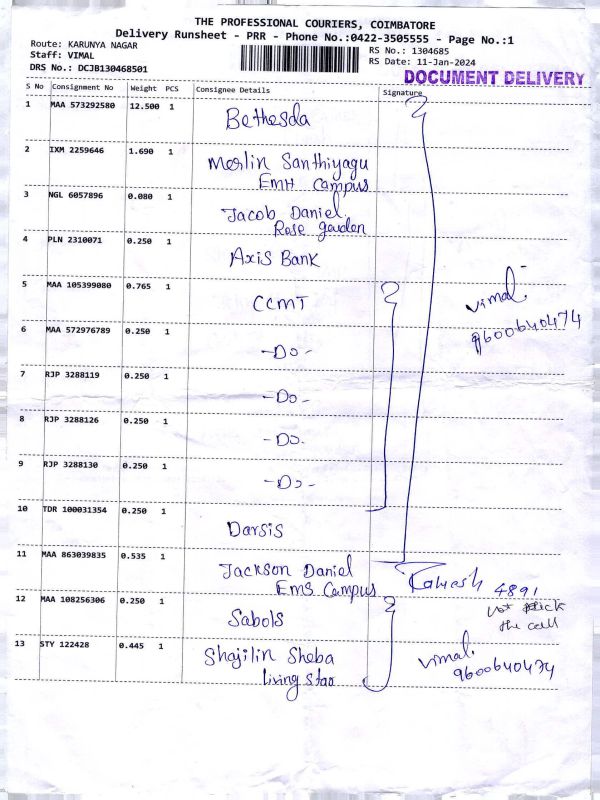 THE PROFESSIONAL COURIERS, COIMBATORE
Delivery Runsheet - PRR - Phone No.:0422-3505555 - Page No.:1
Route: KARUNYA NAGAR
Staff: VIMAL
DRS No.: DCJB130468501
RS No.: 1304685
RS Date: 11-Jan-2024
DOCUMENT DELIVERY
S No Consignment No Weight PCS Consignee Details Signature
1 MAA 573292580 12.500 1
Bethesda
2 IXM 2259646 1.690 1
Merlin Santhiyagu
EMH Campus
3 NGL 6057896 0.080 1
Jacob Daniel
Rose garden
4 PLN 2310071 0.250 1
Axis Bank
5 MAA 105399080 0.765 1
CCMT
vimal
9600640474
6 MAA 572976789 0.250 1
-Do-
7 RJP 3288119 0.250 1
-Do-
8 RJP 3288126 0.250 1
-Do-
9 RJP 3288130 0.250 1
-Do-
10 TDR 100031354 0.250 1
Darsis
11 MAA 863039835 0.535 1
Jackson Daniel
EMS Campus
4891
the call
12 MAA 108256306 0.250 1
Sabols
13 STY 122428 0.445 1
Shajilin Sheba
living star
vimal
9600640474